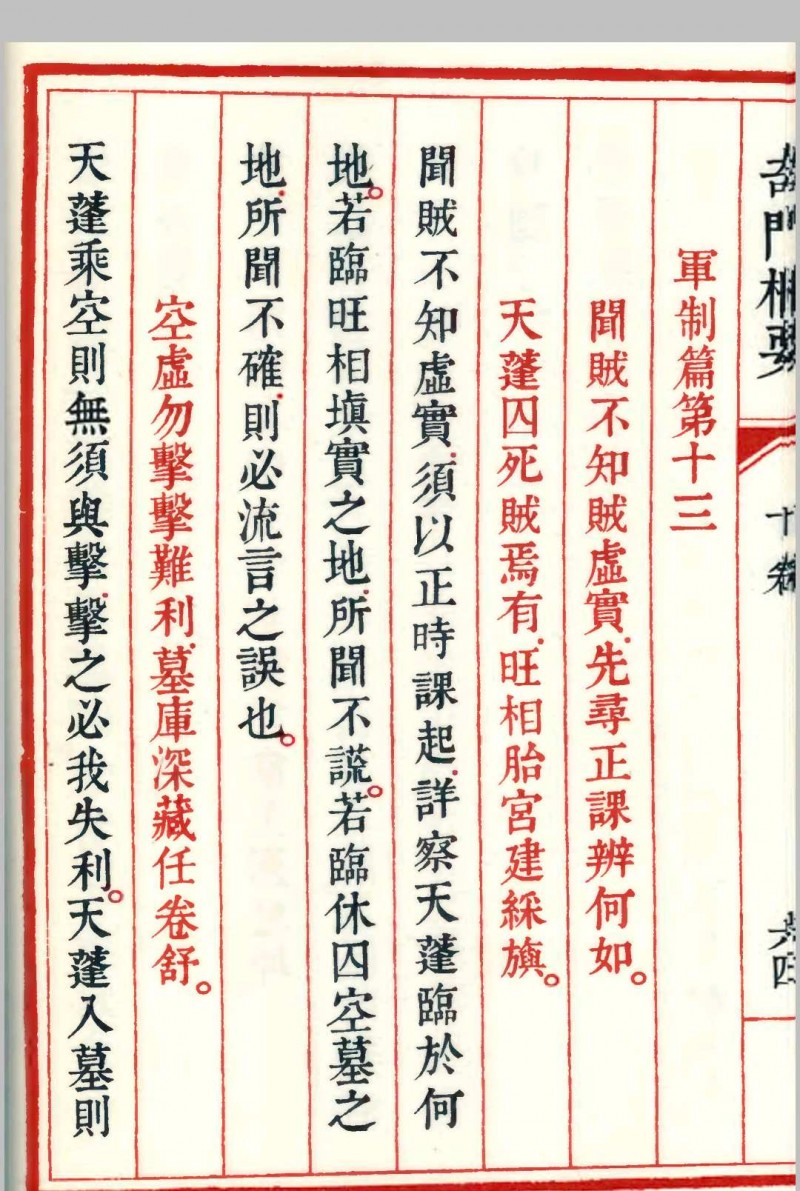 門
十卷
軍制篇第十三
聞賊不知賊虛實先尋正課辨何如。
天蓬囚死賊焉有旺相胎宮建綵旟。
聞賊不知虛實須以正時課起詳察天蓬臨於何
地。若臨旺相塡實之地所聞不謊。若臨休囚空墓之
地所聞不確則必流言之誤也。
空虛勿擊擊難利墓庫深藏任卷舒。
天蓬乘空則無須與擊擊之必我失利。天蓬入墓則